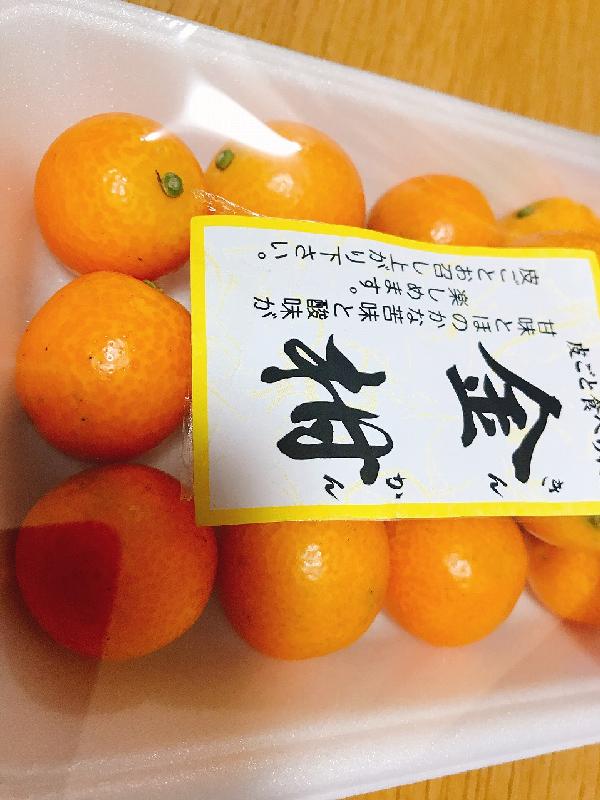 皮ごと食べ
金柑
きんかん
甘味とほのかな苦味と酸味が
楽しめます。
皮ごとお召し上がり下さい。